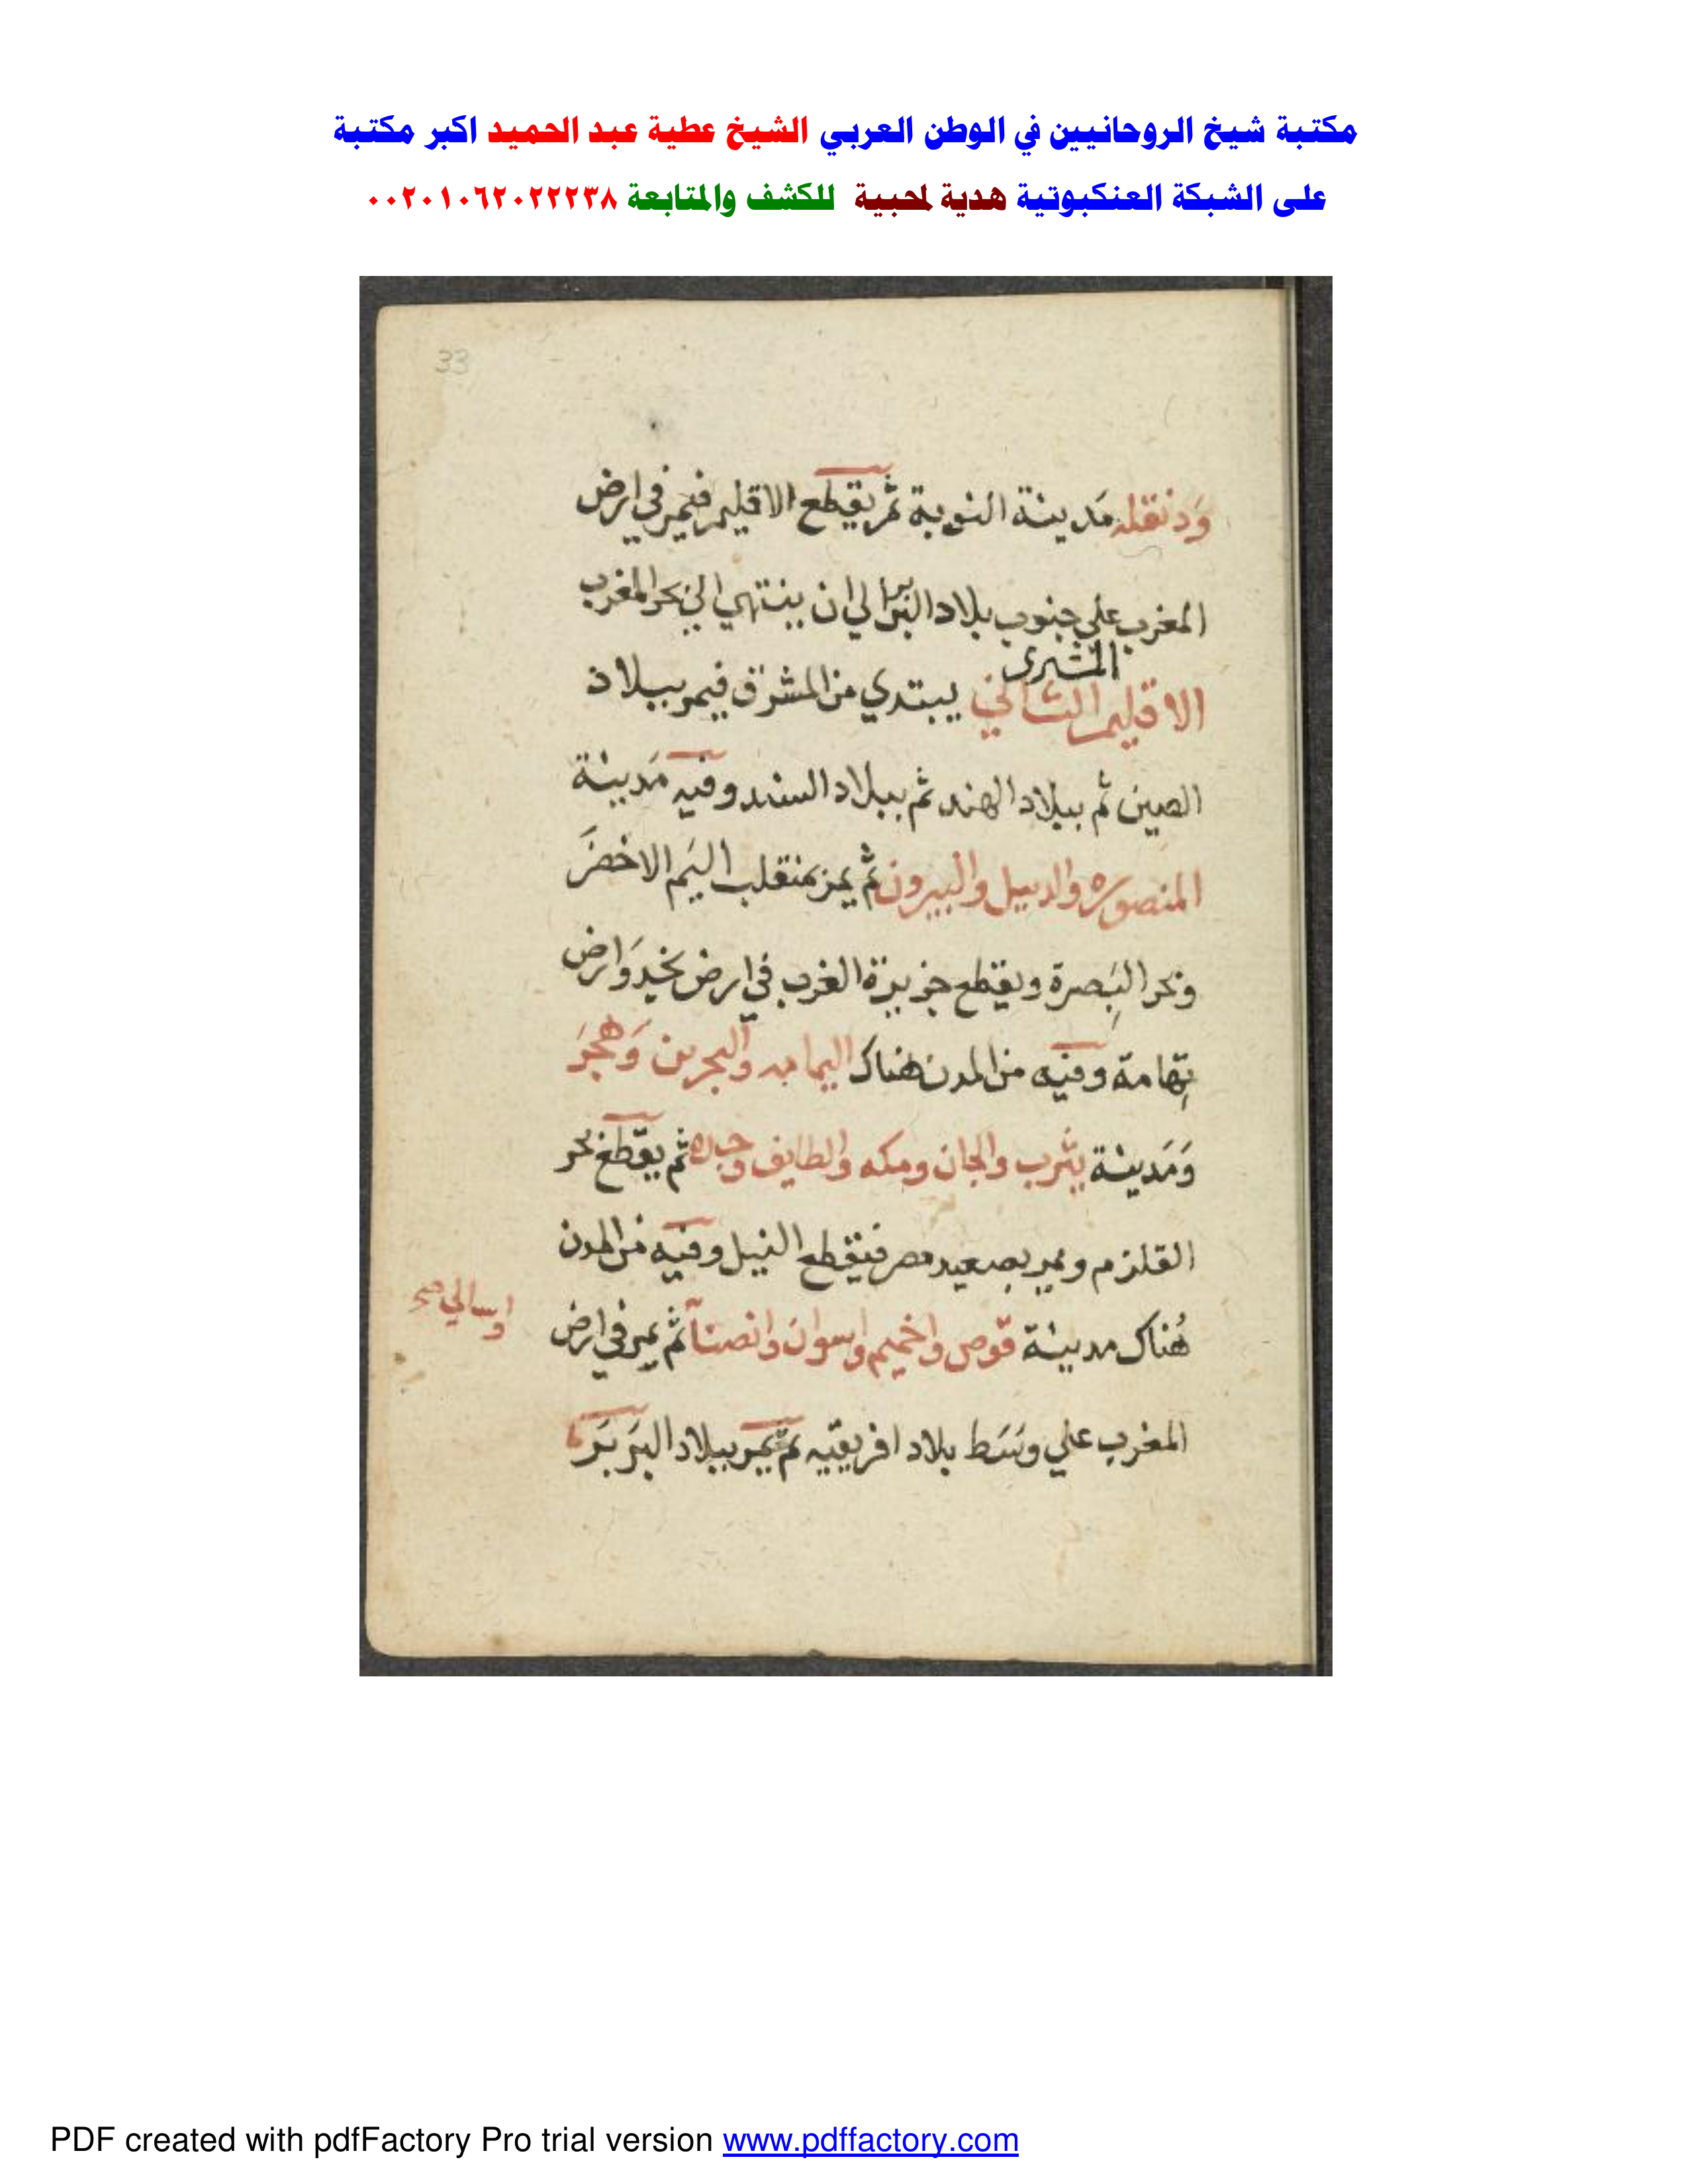 مكتبة شيخ الروحانيين في الوطن العربي الشيخ عطية عبد الحميد اكبر مكتبة
على الشبكة العنكبوتية هدية لمحبية للكشف والمتابعة ٠٠٢٠١٠٦٢٠٢٢٢٣٨
33
ودنقله مَدينة النوبة ثم يقطع الاقليم فيمر في ارض
المغرب علي جنوب بلاد البربر الي ان ينتهي الي بحر المغرب
المشترى
الاقليم الثاني يبتدي من المشرق فيمر ببلاد
الصين ثم ببلاد الهند ثم ببلاد السند وفيه مَدينة
المنصوره والدبيل والبيرون ثم يمر بمنقلب اليَم الاخضَر
وبحر البَصرة ويقطع جزيرة العرب في ارض نجد وَارض
تِهَامة وفيه من المدن هناك اليمامه والبحرين وَهجَر
وَمَدينة يثرب والجان ومكه والطايف وجده ثم يقطع بحر
القلزم ويمر بصعيد مصر فيقطع النيل وفيه من المدن
هُناك مدينة قوص واخميم واسوان وانصنا ثم يمر في ارض
المغرب علي وسَط بلاد افريقيه ثم يمر ببلاد البَربَر
PDF created with pdfFactory Pro trial version www.pdffactory.com